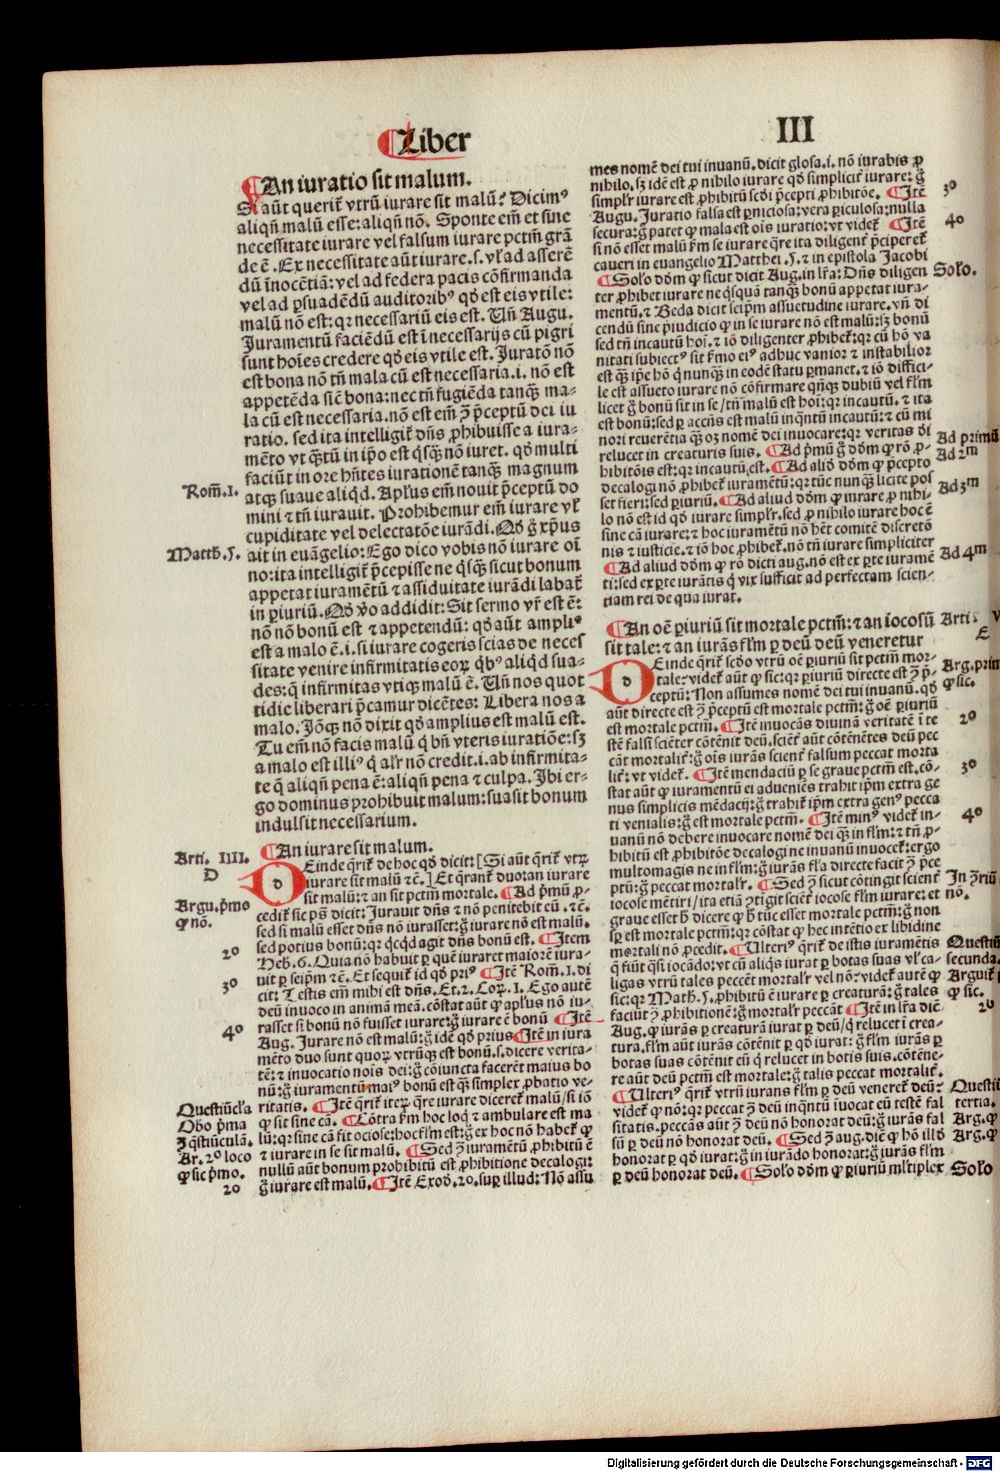 Liber
III
An iuratio sit malum.
Si aūt querit̄ vtrū iurare sit malū? Dicimꝰ
aliqn̄ malū esse: aliqn̄ nō. Sponte em̄ et sine
necessitate iurare vel falsum iurare pctm̄ grā
de ē. Ex necessitate aūt iurare .s. vl̓ ad asserē
dū īnocētiā: vel ad federa pacis cōfirmanda
vel ad ꝑsuadēdū auditoribꝰ qd̓ est eis vtile:
malū nō est: qꝛ necessariū eis est. Un̄ Augu.
Juramentū faciēdū est ī necessarijs cū pigri
sunt hoīes credere qd̓ eis vtile est. Juratō nō
est bona nō tn̄ mala cū est necessaria .i. nō est
appetēda siē bona: nec tn̄ fugiēda tanqꝫ ma-
la cū est necessaria. nō est em̄ ꝯ̄ p̄ceptū dei iu
ratio. sed ita intelligit̄ dn̄s ꝓhibuisse a iura-
mēto vt qꝫtū in ip̄o est qꝫsqꝫ nō iuret. qd̓ multi
faciūt in ore hn̄tes iurationē tanqꝫ magnum
Rom̄.1.
atqꝫ suaue aliqd̓. Apl̓us em̄ nouit p̄ceptū do
mini ⁊ tn̄ iurauit. Prohibemur em̄ iurare vl̓
cupiditate vel delectatōe iurādi. Qd̓ g̊ xp̄us
Matth.5.
ait in euāgelio: Ego dico vobis nō iurare oī
no: ita intelligit̄ p̄cepisse ne qꝫsqꝫ sicut bonum
appetat iuramētū ⁊ assiduitate iurādi labat̄
in ꝑiuriū. Qd̓ v̊o addidit: Sit sermo vr̄ est ē:
nō nō bonū est ⁊ appetendū: qd̓ aūt ampliꝰ
est a malo ē .i. si iurare cogeris scias de neces
sitate venire infirmitatis eoꝝ qͥbꝰ aliqd̓ sua-
des: q̄ infirmitas vtiqꝫ malū ē. Un̄ nos quot
tidie liberari p̄camur dicētes: Libera nos a
malo. Jōqꝫ nō dixit qd̓ amplius est malū est.
Tu em̄ nō facis malū q̄ bn̄ vteris iuratiōe: sꝫ
a malo est illiꝰ q̄ alr̄ nō credit .i. ab infirmita-
te q̄ aliqn̄ pena ē: aliqn̄ pena ⁊ culpa. Ibi er-
go dominus prohibuit malum: suasit bonum
indulsit necessarium.
Arti. IIII.
D
An iurare sit malum.
Deinde qr̄it̄ de hoc qd̓ dicit: [Si aūt qr̄it̄ vtꝝ
iurare sit malū ⁊c̄.] Et qr̄ant̄ duo: an iurare
sit malū: ⁊ an sit pctm̄ mortale. Ad p̄mū ꝓ-
Argu. p̄mo
ꝙ nō.
cedit̄ sic ps̄ dicit: Jurauit dn̄s ⁊ nō penitebit eū. ⁊c̄.
sed si malū esset dn̄s nō iurasset: g̊ iurare nō est malū.
sed potius bonū: qꝛ qͥcqd̓ agit dn̄s bonū est. Item
2o
Heb.6. Quia nō habuit ꝑ quē iuraret maiorē iura-
uit ꝑ seip̄m ⁊c̄. Et sequit̄ id qd̓ priꝰ Itē Rom̄.1. di
3o
cit: Testis em̄ mihi est dn̄s. Et .2. Coꝝ.1. Ego autē
deū inuoco in animā meā. cōstat aūt ꝙ apl̓us nō iu-
rasset si bonū nō fuisset iurare: g̊ iurare ē bonū Itē
4o
Aug. Jurare nō est malū: g̊ idē qd̓ prius Itē in iura
mēto duo sunt quoꝝ vtrūqꝫ est bonū .s. dicere verita-
tē: ⁊ inuocatio noīs dei: g̊ cōiuncta facerēt maius bo
nū: g̊ iuramentū maiꝰ bonū est qꝫ simplex ꝓbatio ve-
Questiūcl̓a
ritatis. Itē qr̄it̄ iteꝝ qͣre iurare diceret̄ malū / si iō
Obo p̄ma
ꝙ sit sine cā. Cōtra fm̄ hoc loqͥ ⁊ ambulare est ma
3 qͣstiūculā.
lū: qꝛ sine cā fit ociose: hoc fl̓m est: g̊ ex hoc nō habet̄ ꝙ
Ar. 2o loco
⁊ iurare in se sit malū. Sed ꝯ̄ iuramētū ꝓhibitū ē
ꝙ sic p̄mo.
nullū aūt bonum prohibitū est ꝓhibitione decalogi:
2o
g̊ iurare est malū. Itē Exod̓.20. suꝑ illud: Nō assu
mes nomē dei tui inuanū. dicit glosa .i. nō iurabis ꝓ
nihilo. sꝫ idē est ꝓ nihilo iurare qd̓ simplicit̄ iurare: g̊
simplr̄ iurare est ꝓhibitū scd̓i p̄cepti ꝓhibitōe. Itē
3o
Augu. Juratio falsa est ꝑniciosa: vera ꝑiculosa: nulla
secura: g̊ patet ꝙ mala est oīs iuratio: vt videt̄ Itē
4o
si nō esset malū fm̄ se iurare qͣre ita diligent̄ p̄ciperet̄
caueri in euangelio Matthei .5. ⁊ in epistola Jacobi
Solo̓ dd̓m ꝙ sicut dicit Aug. in lr̄a: Dn̄s diligen
Solo̓.
ter ꝓhibet iurare ne qͥsquā tanqꝫ bonū appetat iura-
mentū. ⁊ Beda dicit seip̄m assuetudine iurare. vn̄ di
cendū sine p̄iudicio ꝙ in se iurare nō est malū: sꝫ bonū
sed tn̄ incautū hoī. ⁊ iō diligenter ꝓhibet̄: qꝛ cū hō va
nitati subiectꝰ sit fm̄o eiꝰ adhuc vanior ⁊ instabilior
est qꝫ ip̄e hō q̄ nunqꝫ in eodē statu ꝑmanet. ⁊ iō diffici-
le est assueto iurare nō cōfirmare qn̄qꝫ dubiū vel fl̓m
licet g̊ bonū sit in se / tn̄ malū est hoī: qꝛ incautū. ⁊ ita
est bonū: sed ꝑ accn̄s est malū inqͣntū incautū: ⁊ cū mi
nori reuerētia qꝫ oꝫ nomē dei inuocare: qꝛ veritas dī
relucet in creaturis suis. Ad p̄mū g̊ dd̓m ꝙ rō ꝓ-
Ad primū
hibitōis est: qꝛ incautū est. Ad aliō dd̓m ꝙ p̄cepto
Ad 2m
decalogi nō ꝓhibet̄ iuramētū: qꝛ tūc nunqꝫ licite pos
set fieri: sed ꝑiuriū. Ad aliud dd̓m ꝙ iurare ꝓ nihi-
Ad 3m
lo nō est id qd̓ iurare simplr̄. sed ꝓ nihilo iurare hoc ē
sine cā iurare: ⁊ hoc iuramētū nō hēt comitē discretō
nis ⁊ iusticie. ⁊ iō hoc ꝓhibet̄. nō tn̄ iurare simpliciter
Ad aliud dd̓m ꝙ rō dicti aug. nō est ex ꝑte iuramē
Ad 4m
ti: sed ex ꝑte iurātis q̄ vix sufficit ad perfectam scien-
tiam rei de qua iurat.
An oē ꝑiuriū sit mortale pctm̄: ⁊ an iocosū
Arti. V
E
sit tale: ⁊ an iurās fl̓m ꝑ deū deū veneretur
Deinde qr̄it̄ scd̓o vtrū oē ꝑiuriū sit pctm̄ mor-
Arg. prim
tale: videt̄ aūt ꝙ sic: qꝛ ꝑiuriū directe est ꝯ̄ p̄-
ꝙ sic.
ceptū: Non assumes nomē dei tui inuanū. qd̓
aūt directe est ꝯ̄ p̄ceptū est mortale pctm̄: g̊ oē ꝑiuriū
est mortale pctm̄. Itē inuocās diuinā veritatē ī te
2o
stē falsi sciēter cōtēnit deū. sciēt̄ aūt cōtēnētes deū pec
cāt mortalit̄: g̊ oīs iurās scient̄ falsum peccat morta
lit̄: vt videt̄. Itē mendaciū ꝑ se graue pctm̄ est. cō-
3o
stat aūt ꝙ iuramentū ei adueniēs trahit ip̄m extra ge
nus simplicis mēdacij: g̊ trahit̄ ip̄m extra genꝰ pecca
ti venialis: g̊ est mortale pctm̄. Itē minꝰ videt̄ in-
4o
uanū nō debere inuocare nomē dei qꝫ in fl̓m: ⁊ tn̄ ꝓ-
hibitū est ꝓhibitōe decalogi ne inuanū inuocet̄: ergo
multomagis ne in fl̓m: g̊ iurās fl̓a directe facit ꝯ̄ p̄ce
ptū: g̊ peccat mortalr̄. Sed ꝯ̄ sicut cōtingit scient̄
In ꝯ̄riū
iocose mētiri / ita etiā ꝯtīgit scient̄ iocose fl̓m iurare: et
nō.
graue esset h̄ dicere ꝙ h̄ tūc esset mortale pctm̄: g̊ non
sꝑ est mortale pctm̄: qꝛ cōstat ꝙ hec intētio et libidine
mortali nō ꝓcedit. Ulteriꝰ qr̄it̄ de istis iuramētis
Questiū
q̄ fiūt qͣsi iocādo: vt cū aliqͥs iurat ꝑ botas suas vl̓ ca-
secunda.
ligas vtrū tales peccēt mortalr̄ vel nō: videt̄ autē ꝙ
Arguit̄ p
sic: qꝛ Math̓.5. ꝓhibitū ē iurare ꝑ creaturā: g̊ tales
ꝙ sic.
faciūt ꝯ̄ ꝓhibitionē: g̊ mortalr̄ peccāt Itē in lr̄a diē
2o
Aug. ꝙ iurās ꝑ creaturā iurat ꝑ deū / q̄ relucet ī crea-
tura. fl̓m aūt iurās cōtēnit ꝑ qd̓ iurat: g̊ fl̓m iurās ꝑ
botas suas cōtēnit eū q̄ relucet in botis suis. cōtēne-
re aūt deū pctm̄ est mortale: g̊ talis peccat mortalit̄.
Ulteriꝰ qr̄it̄ vtrū iurans fl̓m ꝑ deū veneret̄ deū:
Questiū
videt̄ ꝙ nō: qꝛ peccat ꝯ̄ deū inqͣntū iuocat eū testē fal
tertia.
sitatis. peccās aūt ꝯ̄ deū nō honorat deū: g̊ iurās fal
Arg. ꝙ
sū ꝑ deū nō honorat deū. Sed ꝯ̄ aug. diē ꝙ hō illō
Arg. ꝙ
honorat ꝑ qd̓ iurat: g̊ in iurādo honorat: g̊ iurās fl̓m
ꝑ deū honorat deū. Solo̓ dd̓m ꝙ ꝑiuriū ml̓tiplex
Solo
Digitalisierung gefördert durch die Deutsche Forschungsgemeinschaft - DFG